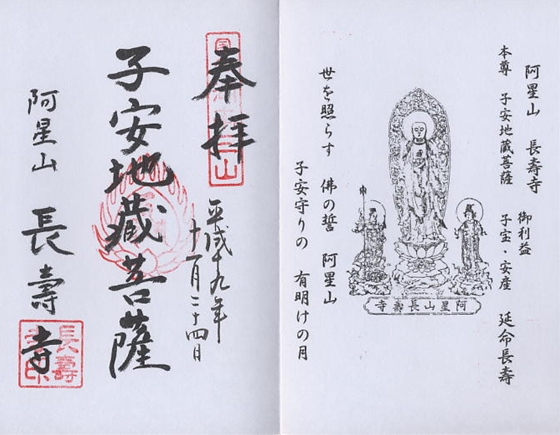 阿星山 長壽寺
本尊 子安地蔵菩薩
御利益
子宝・安産
延命長壽
阿星山長壽寺
世を照らす 佛の誓 阿星山
子安守りの 有明けの月
奉拝
平成十九年
十一月二十四日
子安地蔵菩薩
阿星山 長壽寺